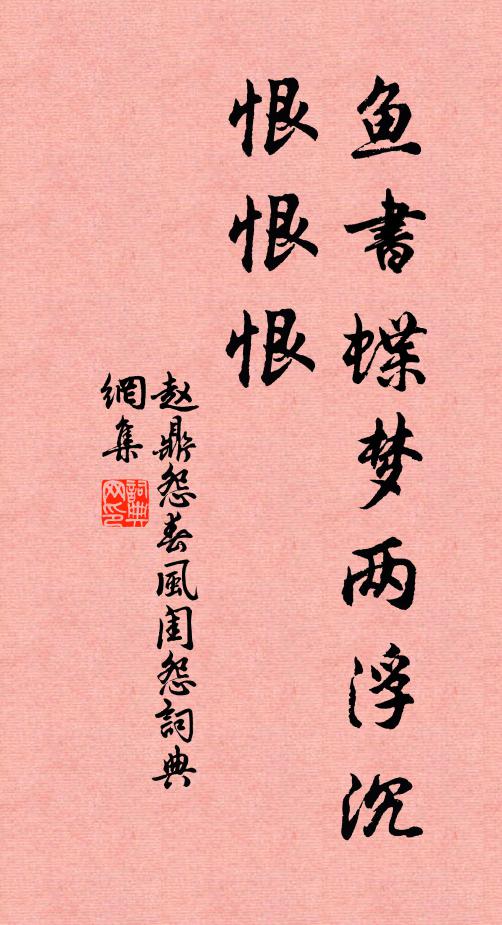 鱼書蝶梦两浮沉
恨恨恨
赵鼎怨春風闺怨詞典
網集
詞典
网印